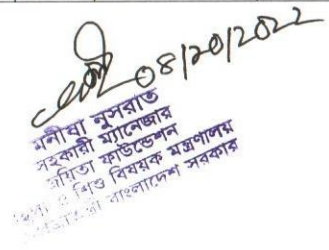 ০৪/১০/২০২২
মনীষা নুসরাত
সহকারী ম্যানেজার
জয়িতা ফাউন্ডেশন
ও শিশু বিষয়ক মন্ত্রণালয়
বাংলাদেশ সরকার